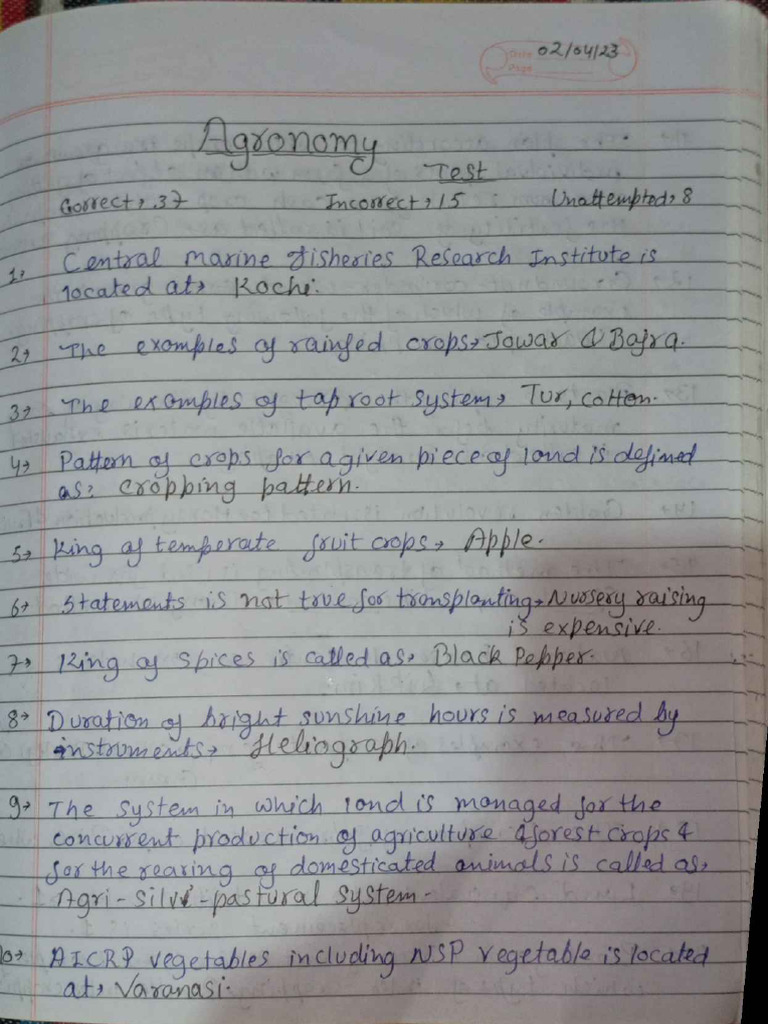 Date 02/04/23
Page
Agronomy
Test
Correct → 37 Incorrect → 15 Unattempted → 8
1→ Central marine fisheries Research Institute is
located at → Kochi.
2→ The examples of rainfed crops → Jowar & Bajra.
3→ The examples of tap root system → Tur, cotton.
4→ Pattern of crops for a given piece of land is defined
as: cropping pattern.
5→ King of temperate fruit crops → Apple.
6→ Statements is not true for transplanting → Nursery raising
is expensive.
7→ King of Spices is called as → Black Pepper.
8→ Duration of bright sunshine hours is measured by
instruments → Heliograph.
9→ The system in which land is managed for the
concurrent production of agriculture & forest crops &
for the rearing of domesticated animals is called as →
Agri-silvi-pastural system.
10→ AICRP vegetables including NSP vegetable is located
at → Varanasi.